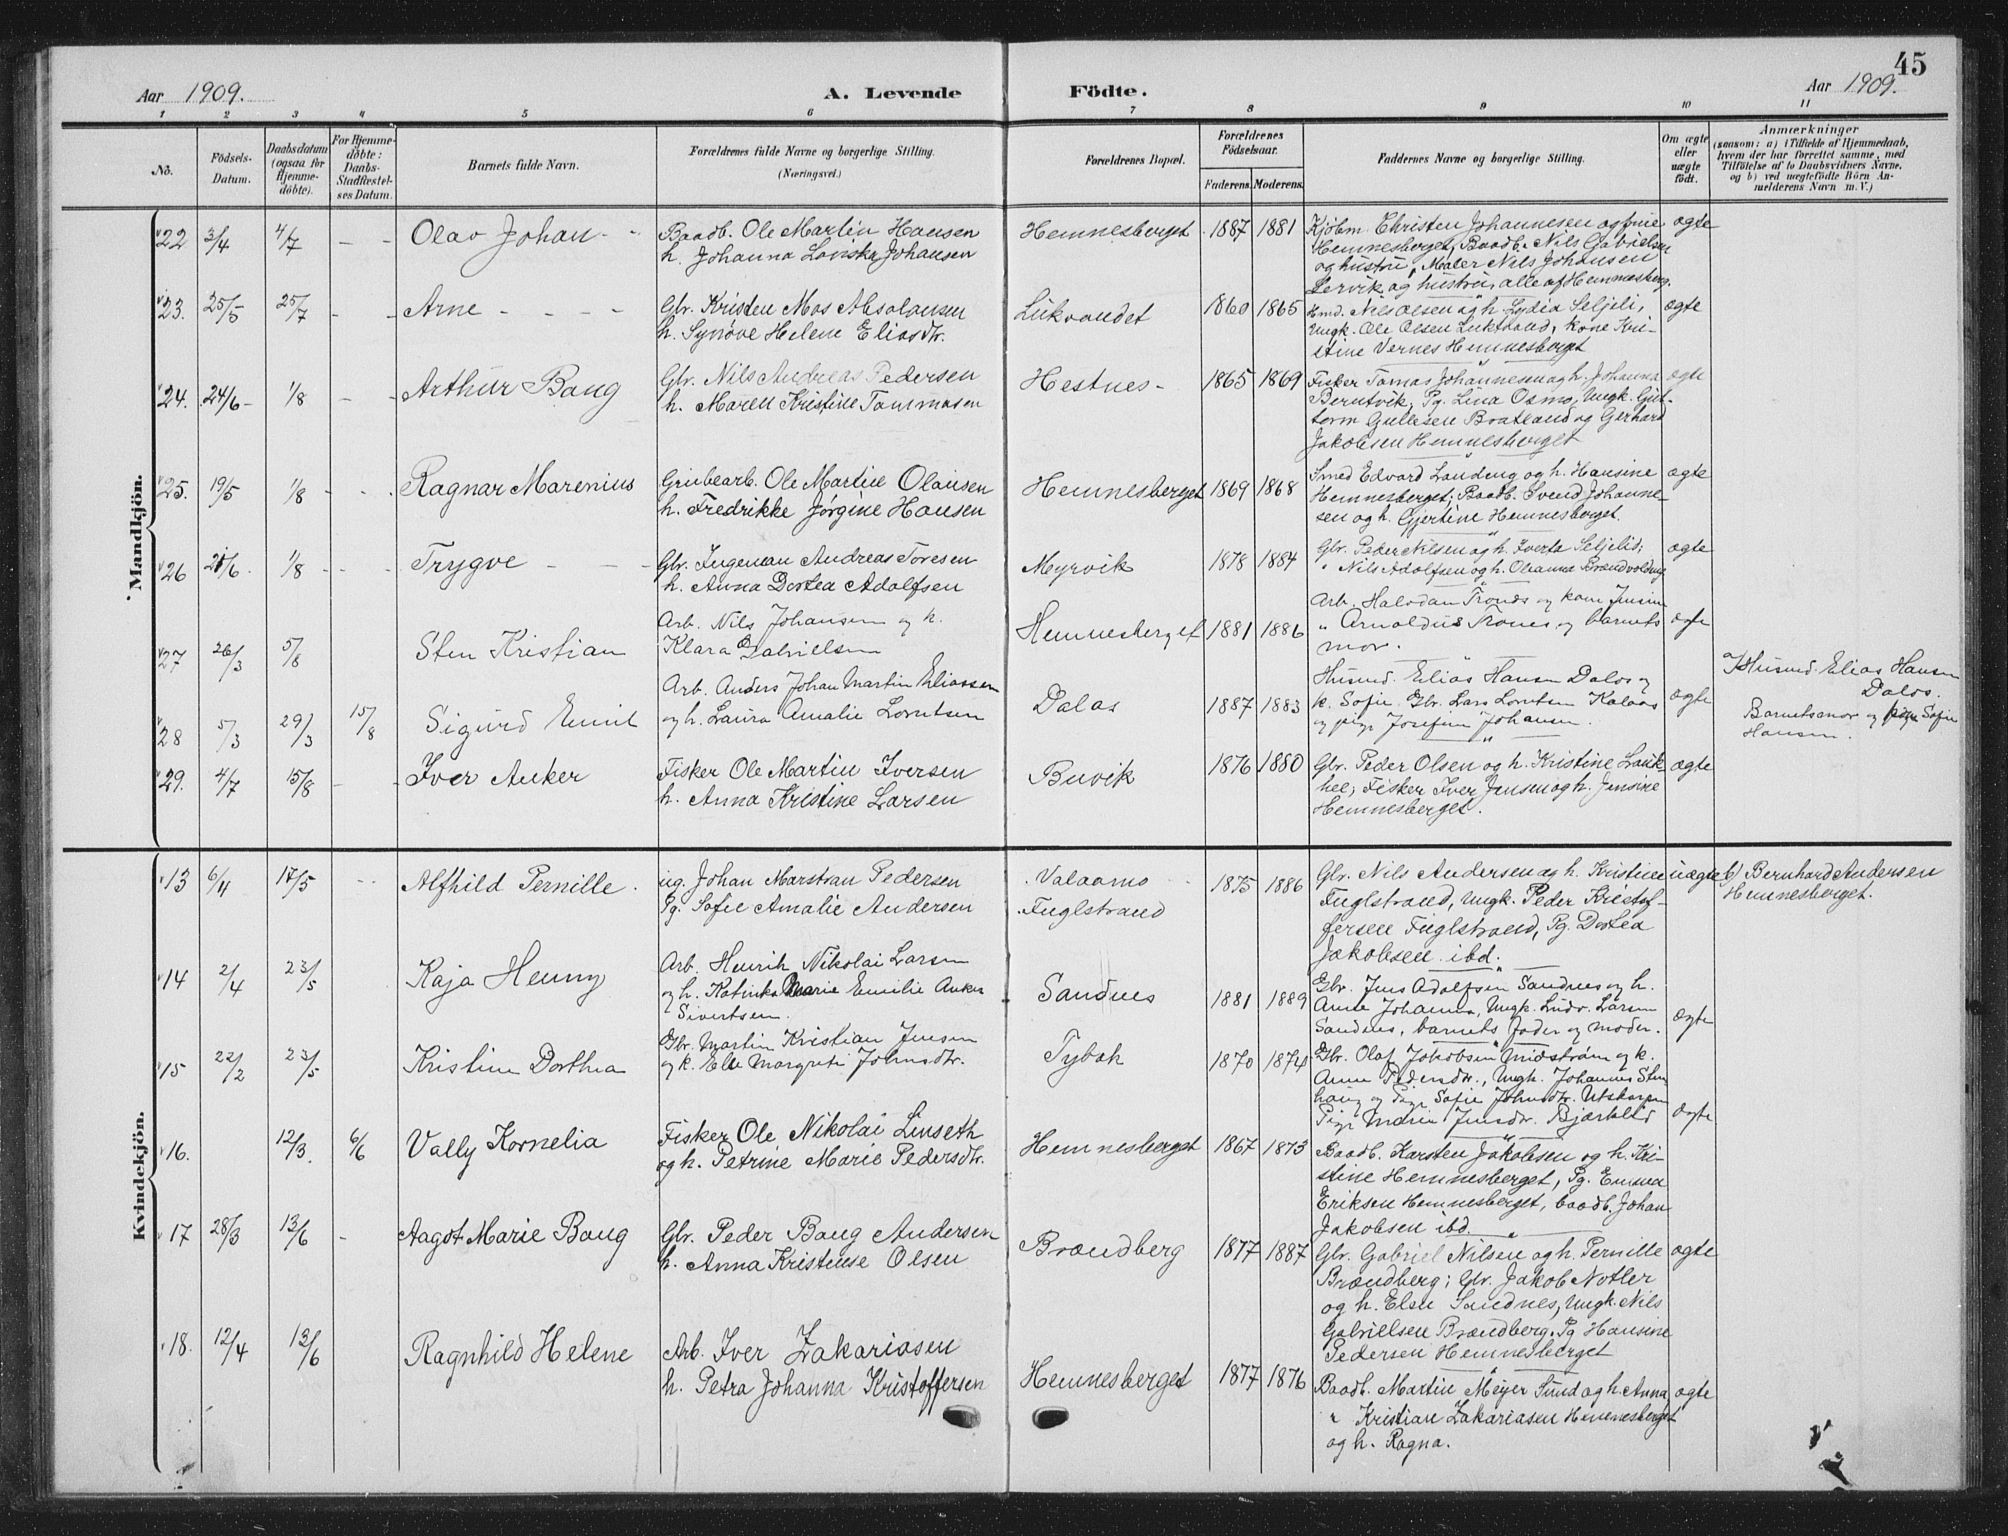 45
Aar 1909.
A. Levende Födte.
Aar 1909.
1 2 3 4 5 6 7 8 9 10 11
No.
Födsels-Datum.
Daabsdatum (ogsaa for Hjemme-döbte).
For Hjemme-döbte: Daabs-Stadfæstel-ses Datum.
Barnets fulde Navn.
Forældrenes fulde Navne og borgerlige Stilling.
(Næringsvei.)
Forældrenes Bopæl.
Forældrenes Födselsaar.
Faderens. Moderens.
Faddernes Navne og borgerlige Stilling.
Om ægte eller uægte födt.
Anmærkninger
(saasom: a) i Tilfælde af Hjemmedaab,
hvem der har forrettet samme, med
Tilföielse af to Daabsvidners Navne,
og b) ved uægtefödte Börn An-
melderens Navn m. V.)
Mandkjön.
22 3/4 4/7 - - Olav Johan - -
Baadb. Ole Martin Hansen
h. Johanna Loviska Johansen
Hemnesberget 1887 1881
Kjöbm. Christen Johannesen og frue
Hemnesberget, Baadb. Nils Gabrielsen
og hustru, Maler Nils Johansen
Lervik og hustru, alle af Hemnesberg.
ægte
23. 25/5 25/7 - - Arne - - - -
Gbr. Kristen Mos Absolonsen
h. Synöve Helene Eliasdtr.
Lukvandet 1860 1865
Hmd. Nils Olsen og h. Lydia Seljeli,
Ungk. Ole Olsen Luktvand, kone Kri-
stine Vernes Hemnesberget
ægte
24. 24/6 - 1/8 - - Arthur Bang
Gbr. Nils Andreas Pedersen
h. Maren Kristine Tommasen
Hestnes - 1865 1869
Fisker Tomas Johannesen og h. Johanna
Berntvik, Pg. Lina Osmo, Ungk. Gut-
torm Gullesen Baatland og Gerhard
Jakobsen Hemnesberget
ægte
25. 19/5 1/8 - - - Ragnar Marenius
Grubearb. Ole Martin Olausen
h. Fredrikke Jörgine Hansen
Hemnesberget 1869 1868
Smed Edvard Landeng og h. Hansine
Hemnesberget; Baadb. Svend Johanne-
sen og h. Gjertine Hemnesberget.
ægte
26 21/6. 1/8 - - - Trygve - - -
Gbr. Ingeman Andreas Toresen
h. Anna Dortea Adolfsen
Myrvik 1878 1884
Gbr. Peder Nilsen og h. Iverta Seljelid;
" Nils Adolfsen og h. Oleanna Brændvolding
ægte
27 26/3 5/8 Sten Kristian
Arb. Nils Johansen og h.
Klara Gabrielsen
Hemnesberget 1881 1886
Arb. Halvdan Trones og kone Jensine
" Arnoldus Trones og barnets
mor.
ægte
28 5/3 29/3 15/8 Sigurd Emil
Arb. Anders Johan Martin Eliassen
og h. Laura Amalie Lorntsen
Dalas 1887 1883
Husmd. Elias Hansen Dalos og
k. Sofie. Gbr. Lars Lorntsen Kalaas
og pige Josefine Johansen.
ægte
Husmd. Elias Hansen
Dalos.
Barnetsmor og pige Sofie
Hansen.
29. 4/7 15/8 - - Iver Anker
Fisker Ole Martin Iversen
h. Anna Kristine Larsen
Buvik 1876 1880
Gbr. Peder Olsen og h. Kristine Lauk-
hel; Fisker Iver Jensen og h. Jensine
Hemnesberget.
ægte
Kvindekjön.
13 6/4 17/5 - - Alfhild Pernille.
ug. Johan Marstran Pedersen
Pg. Sofie Amalie Andersen
Valaamo
Fuglstrand
1875 1886
Gbr. Nils Andersen og h. Kristine
Fuglstrand, Ungk. Peder Kristof-
fersen Fuglstrand, Pg. Dortea
Jakobsen ibd.
uægte
b) Bernhard Andersen
Hemnesberget.
14 2/4 23/5 Kaja Henny
Arb. Henrik Nikolai Larsen
og h. Katinka Marie Emilie Anker
Sivertsen.
Sandnes 1881 1889
Gbr. Jens Adolfsen Sandnes og h.
Anne Johanna, Ungk. Ludv. Larsen
Sandnes, barnets fader og moder.
ægte
15 22/2 23/5 Kristine Dorthea
Gbr. Martin Kristian Jensen
og k. Else Margrete Johnsdtr.
Tybak 1870 1874
Gbr. Olaf Jakobsen Midström og k.
Anne Pedersdtr., Ungk. Johannes Sten-
haug og Pige Sofie Johnsdtr. Utskarpen
Pige Maria Jensdtr. Bjærklid
ægte
16. 12/3. 6/6 Vally Kornelia
Fisker Ole Nikolai Linseth
og h. Petrine Marie Pedersdtr.
Hemnesberget 1867 1873
Baadb. Karsten Jakobsen og h. Kri-
stine Hemnesberget, Pg. Emma
Eriksen Hemnesberget, baadb. Johan
Jakobsen ibd.
17 28/3 13/6 - Aagot Marie Bang
Gbr. Peder Bang Andersen
h. Anna Kristense Olsen
Brændberg 1877 1887
Gbr. Gabriel Nilsen og h. Pernille
Brændberg; Gbr. Jakob Notler
og h. Elen Sandnes, Ungk. Nils
Gabrielsen Brændberg. Pg. Hansine
Pedersen Hemnesberget
ægte
18. 12/4 13/6 Ragnhild Helene
Arb. Iver Zakariasen
h. Petra Johanna Kristoffersen
Hemnesberget 1877 1876
Baadb. Martin Meyer Sund og h. Anna
" Kristian Zakariasen Hemnesberget
og h. Ragna.
ægte